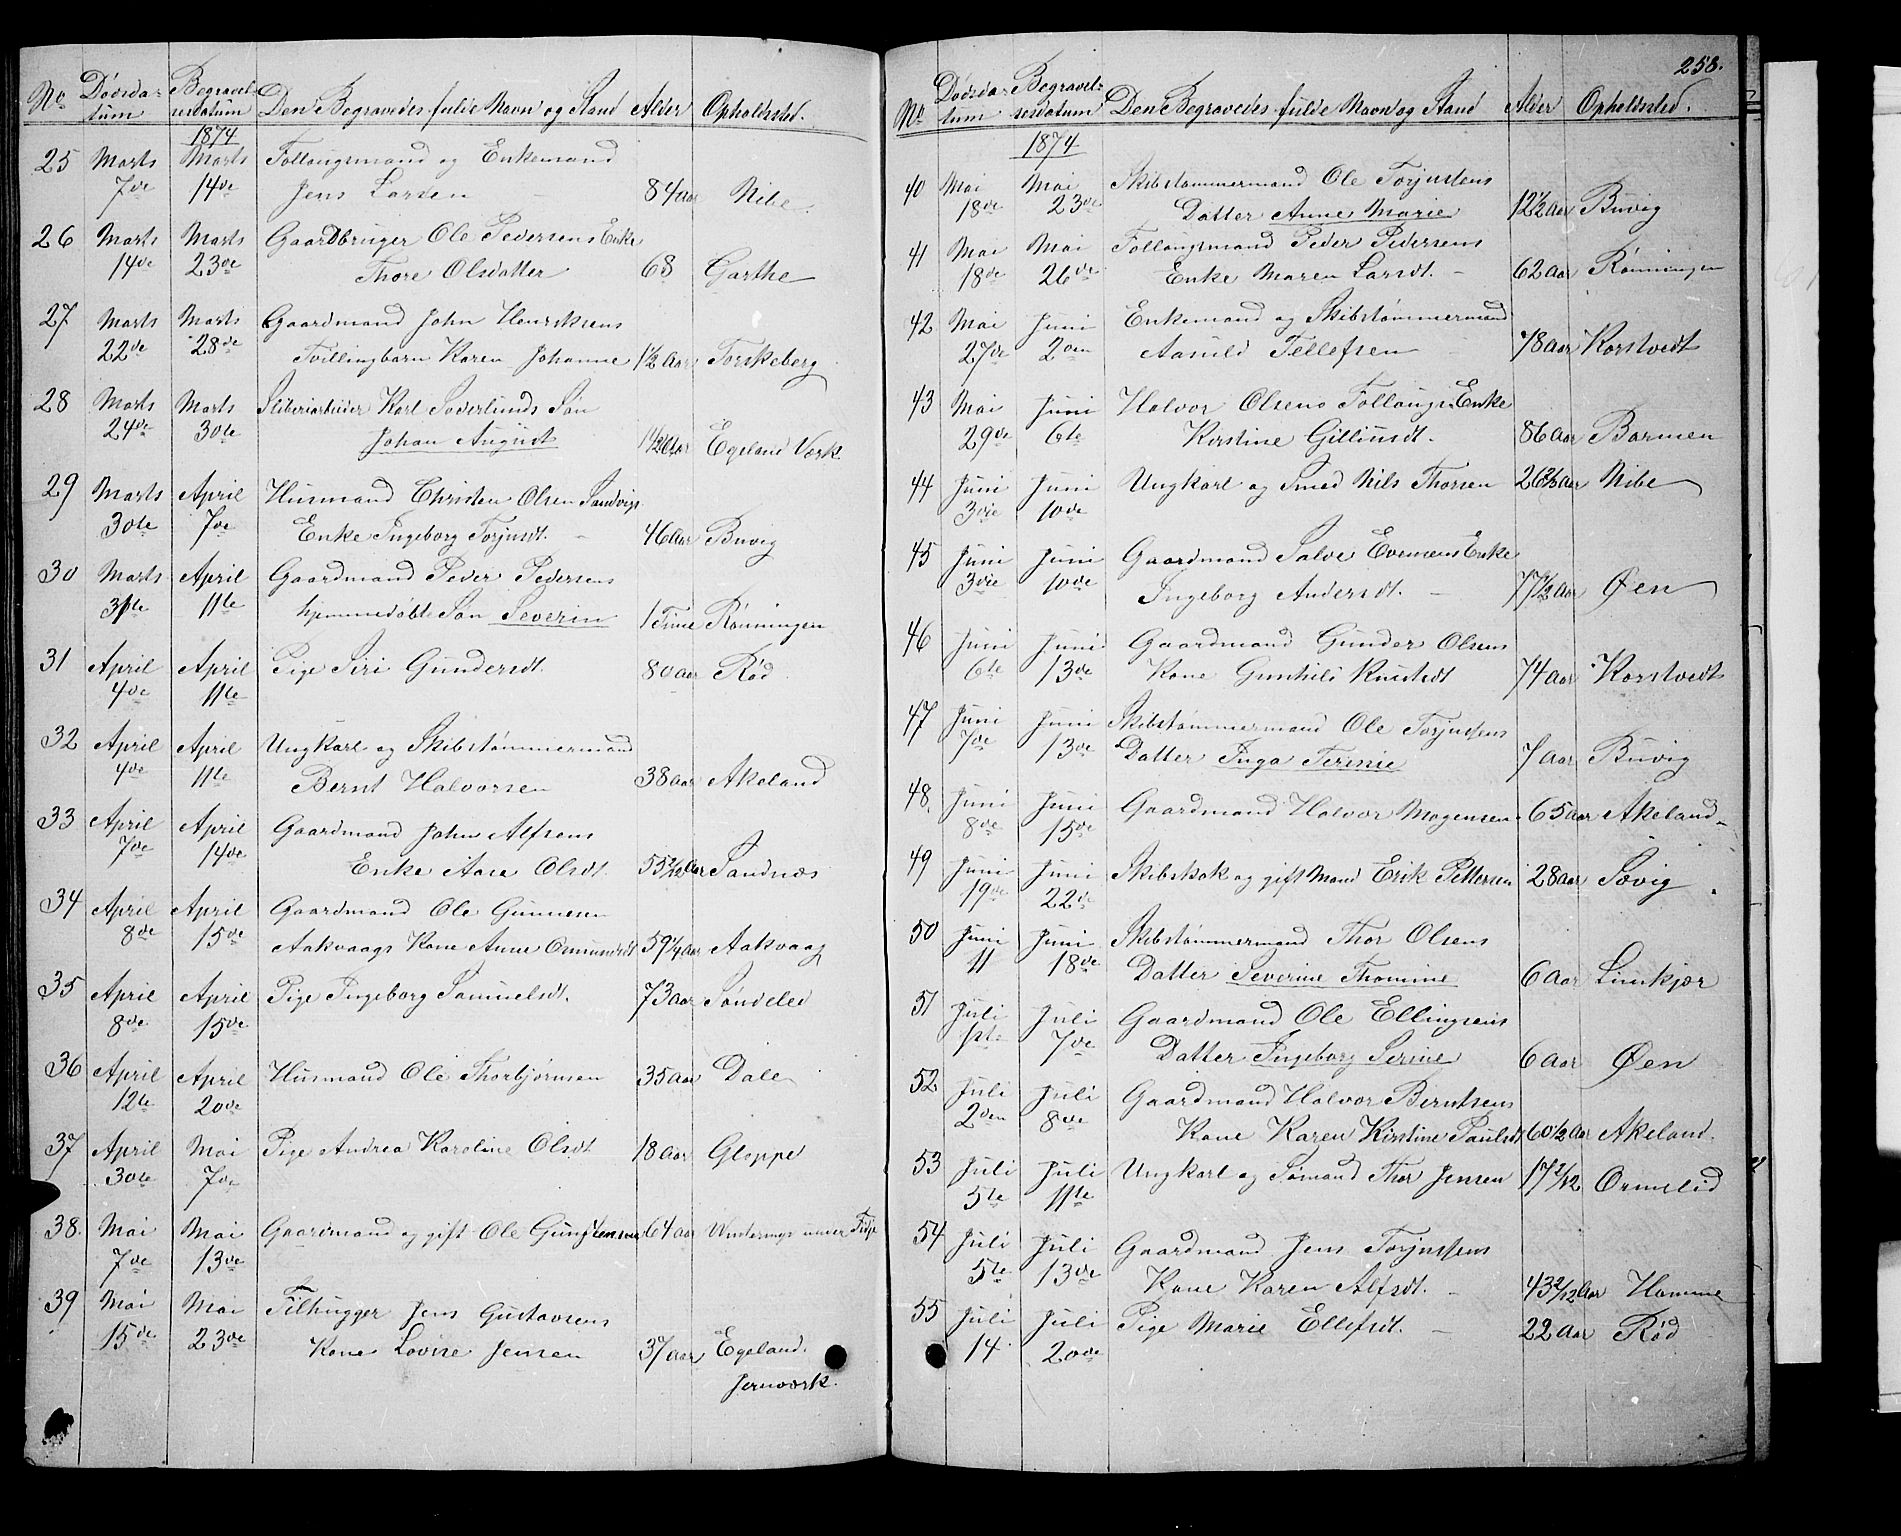 No. Dödsdatum Begravelsesdatum Den Begravedes fulde Navn og Stand Alder Opholdssted.
1874
25 Marts Marts Follaugsmand og Enkemand
7de 14de Jens Larsen 84 aar Nibe.
26 Marts Marts Gaardbruger Ole Pedersens Enke
14de 23de Thore Olsdatter 68 Garthe
27 Marts Marts Gaardmand John Henriksens
22de 28de Tvillingbarn Karen Johanne 1½ aar Torskeberg
28 Marts Marts Karl Soderlunds Søn
24de 30te Johan August Egeland Værk.
29 Marts April Husmand Christen Olsen Sandvigs
30te 7de Enke Ingeborg Torjusdt. 46 aar Buvig
30 Marts April Gaardmand Peder Pedersens
31te 11te hjemmedöbte Søn Severin 1 Time Rönningen
31 April April Pige Siri Gundersdt. 80 aar Röd
4de 11te
32 April April Ungkarl og Skibstømmermand
4de 11te Bernt Halvorsen 38 aar Akeland
33 April April Gaardmand John Alfsens
7de 14de Enke Aase Olsdt. 55 2/12 aar Sandnæs
34 April April Gaardmand Ole Gunnesen
8de 15de Aakvaags Kone Anne Omundsdt 59¼ aar Aakvaag
35 April April Pige Ingeborg Samuelsdt. 73 aar Söndeled
8de 15de
36 April April Husmand Ole Thorbjörnsen 35 aar Dale
12te 20de
37 April Mai Pige Andrea Karoline Olsdt 18 aar Gloppe
30te 7de
38. Mai Mai Gaardmand og gift Ole 64 aar
7de 13de
39 Mai Mai Filhugger Jens Gustavsens
15de 23de Kone Lovise Jensen 37 aar Egeland.
Jernværk.
258.
No. Dödsdatum Begravelsesdatum Den Begravedes fulde Navn og Stand Alder Opholdssted.
1874
40 Mai Mai Skibstømmermand Ole Torjusens
18de 23de Datter Anne Marie 12½ aar Buvig
41 Mai Mai Follaugsmand Peder Pedersens
18de 26de Enke Maren Larsdt. 62 aar Rönningen
42 Mai Juni Enkemand og Skibstømmermand
27de 2den Aasuld Tellefsen 78 aar Korstvedt
43 Mai Juni Halvor Olsens Follaugs Enke
29de 6te Kirstine Gilliusdt. 86 aar Barmen
44 Juni Juni Ungkarl og Smed Nils Thorsen Nibe
3die 10de
45 Juni Juni Gaardmand Salve Evensens Enke
3die 10de Ingeborg Andersdt. 77½ aar Øen
46 Juni Juni Gaardmand Gunder Olsens
6te 13de Kone Gunhild Knudsdt 74 aar Korstvedt
47 Juni Juni Skibstømmermand Ole Torjusens
7de 13de Datter Inga Teresie 7 aar Buvig
48. Juni Juni Gaardmand Halvor Mogensen 65 aar Akeland
8de 15de
49 Juni Juni Skibskok og gift Mand Erik Pettersen 28 aar Søvig
19de 22de
50 Juni Juni Skibstømmermand Thor Olsens
11 18de Datter Severine Thomine 6 aar Limkjær
51 Juli Juli Gaardmand Ole Ellingsens
1ste 7de Datter Ingeborg Serine 6 aar Øen
52 Juli Juli Gaardmand Halvor Berntsens
2den 8de Kone Karen Kirstine Paulsdt 60½ aar Akeland.
53 Juli Juli Ungkarl og Sømand Thor Jensen 17 2/12 Ormelid
5te 11te
54 Juli Juli Gaardmand Jens Torjussens
5te 13de Kone Karen Alfsdt. 43 2/12 aar Hamme
55 Juli Juli Pige Marie Ellefsdt. 22 aar Röd
14 20de